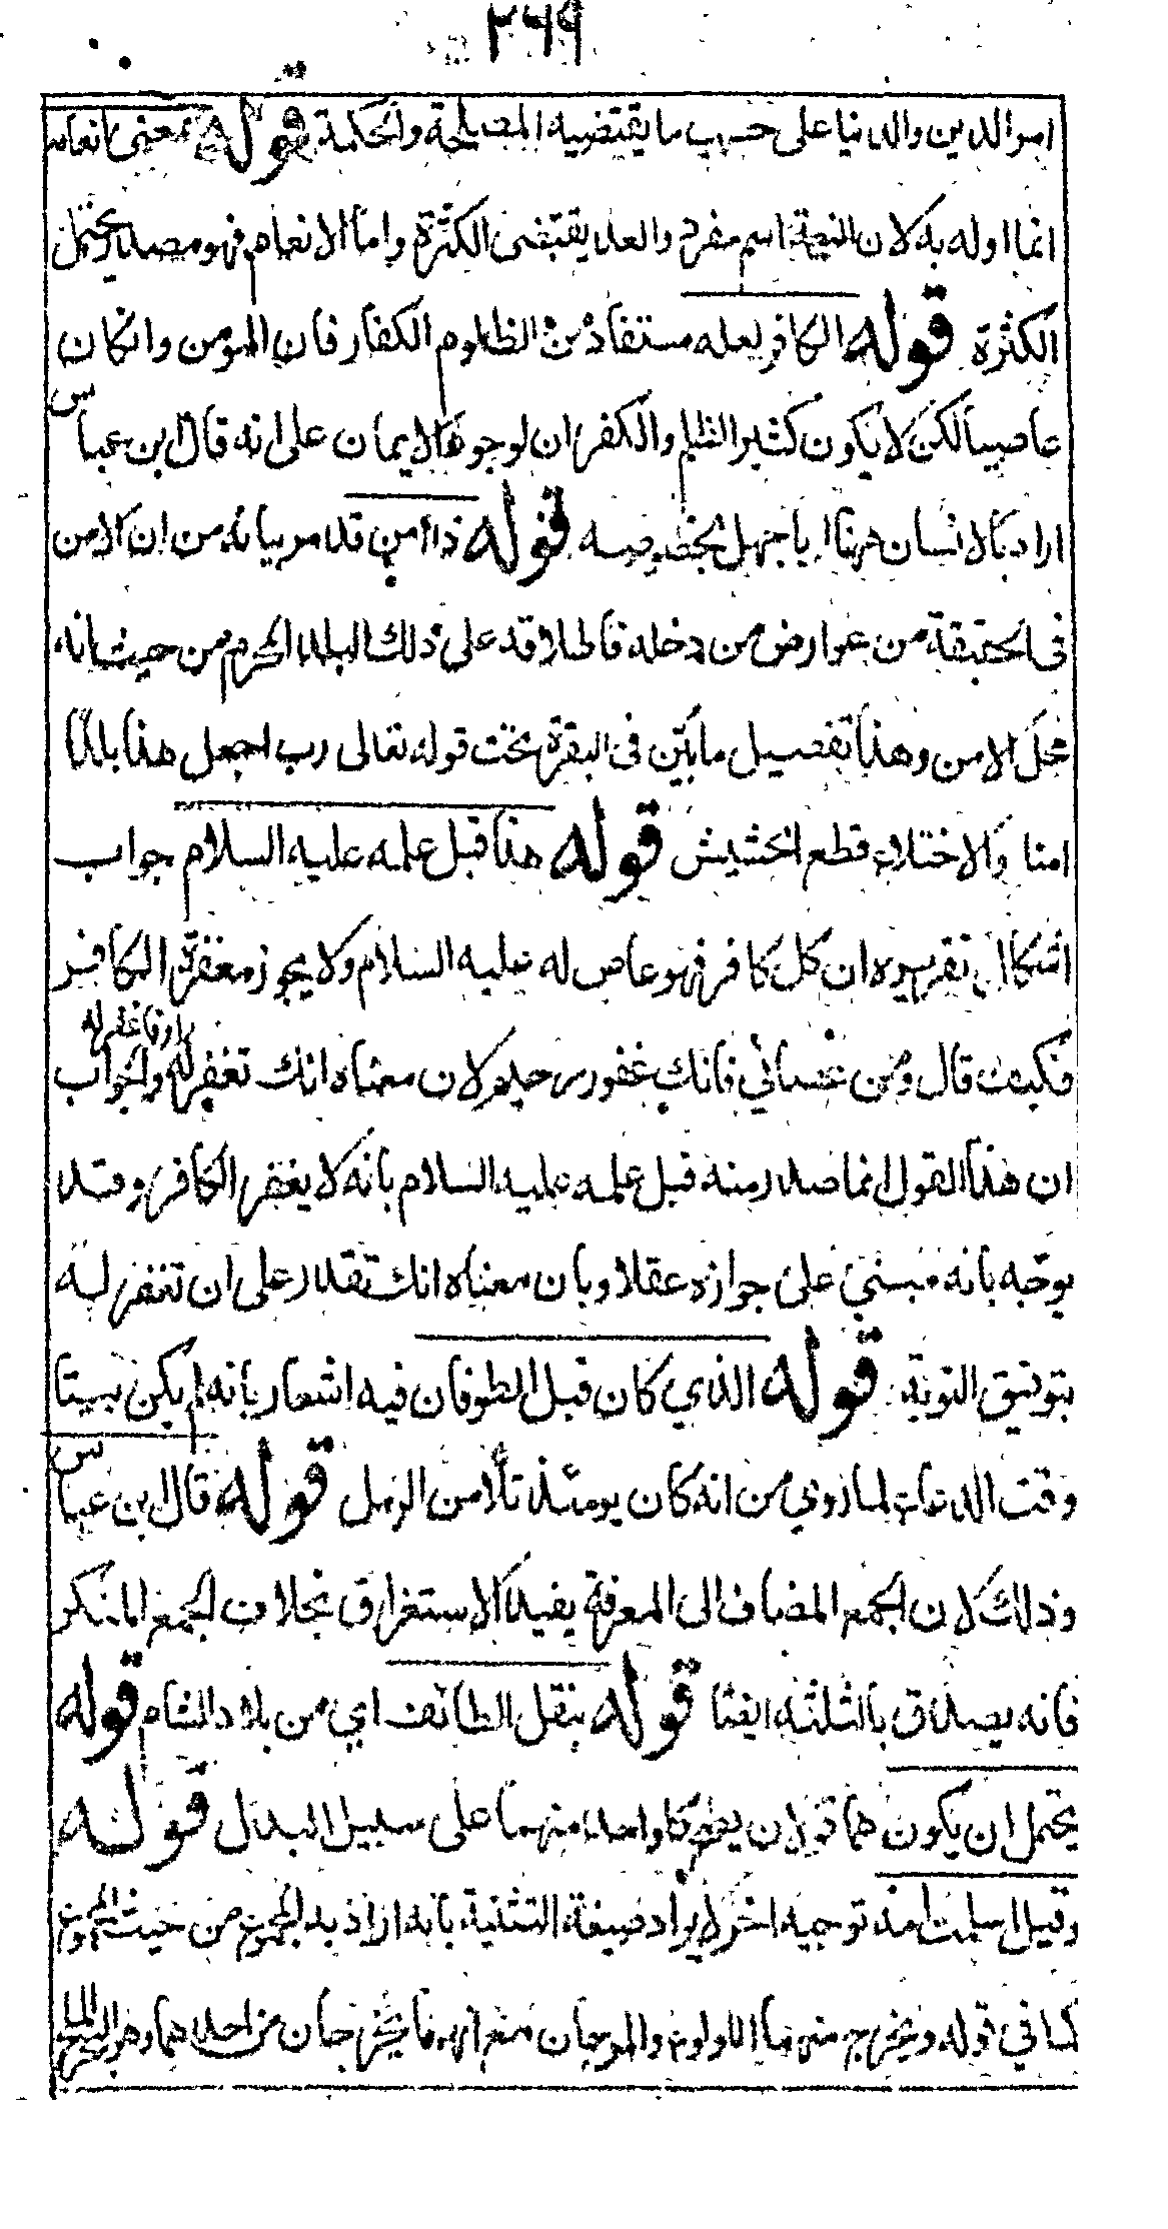 ٢٦٩
امور الدين والدنيا على حسب ما يقتضيه المصلحة والحكمة قوله بمعنى انعامه
انما اوله به لان النعمة اسم مفرد والعد يقتضى الكثرة واما الانعام فهو مصدر يحتمل
الكثرة قوله الكافر لعله مستفاد من الظلوم الكفار فان المؤمن وانكان
عاصيا لكن لا يكون كثير الظلم والكفران لوجود الايمان على انه قال ابن عباس
اراد بالانسان ههنا ابا جهل بخصوصه قوله ذا امن قد مر بيانه من ان الامن
فى الحقيقة من عوارض من دخله فاطلاقه على ذلك البلد الحرم من حيث انه
محل الامن وهذا تفصيل ما بين فى البقرة تحت قوله تعالى رب اجعل هذا بلدا
امنا والاختلاء قطع الحشيش قوله هذا قبل علمه عليه السلام جواب
اشكال تقريره ان كل كافر فهو عاص له عليه السلام ولا يجوز مغفرة الكافر
فكيف قال ومن عصاني فانك غفور رحيم لان معناه انك تغفر له والجواب
ان هذا القول انما صدر منه قبل علمه عليه السلام بانه لا يغفر الكافر وقد
يوجه بانه مبني على جوازه عقلا وبان معناه انك تقدر على ان تغفر له
بتوفيق التوبة قوله الذي كان قبل الطوفان فيه اشعار بانه لم يكن بيتا
وقت الدعاء لما روي من انه كان يومئذ تلا من الرمل قوله قال ابن عباس
وذلك لان الجمع المضاف الى المعرفة يفيد الاستغراق بخلاف الجمع المنكر
فانه يصدق بالثلثه ايضا قوله بنقل الطائف اي من بلاد الشام قوله
يحتمل ان يكون هما قولان يظهر كل واحد منهما على سبيل البدل قوله
وقيل اسلمت امه توجيه اخر لايراد صيغة التثنية بانه اراد به المجموع من حيث المجموع
كما في قوله ويخرج منهما اللؤلؤ والمرجان مع انهما يخرجان من احدهما وهو البحر الملح